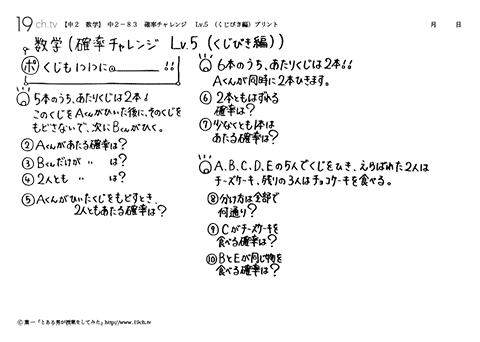 19ch.tv 【中2 数学】 中2-83 確率チャレンジ Lv.5 (くじびき編) プリント 月 日
数学(確率チャレンジ Lv.5 (くじびき編))
ポ くじも1つ1つに①________!!
5本のうち、あたりくじは2本!
このくじをAくんがひいた後に、そのくじを
もどさないで、次にBくんがひく。
②Aくんがあたる確率は?
③Bくんだけが 〃 は?
④2人とも 〃 は?
⑤Aくんがひいたくじをもどすとき、
2人ともあたる確率は?
6本のうち、あたりくじは2本!!
Aくんが同時に2本ひきます。
⑥2本ともはずれる
確率は?
⑦少なくとも1本は
あたる確率は?
A、B、C、D、Eの5人でくじをひき、えらばれた2人は
チーズケーキ、残りの3人はチョコケーキを食べる。
⑧分け方は全部で
何通り?
⑨Cがチーズケーキを
食べる確率は?
⑩BとEが同じ物を
食べる確率は?
© 葉一「とある男が授業をしてみた」http://www.19ch.tv